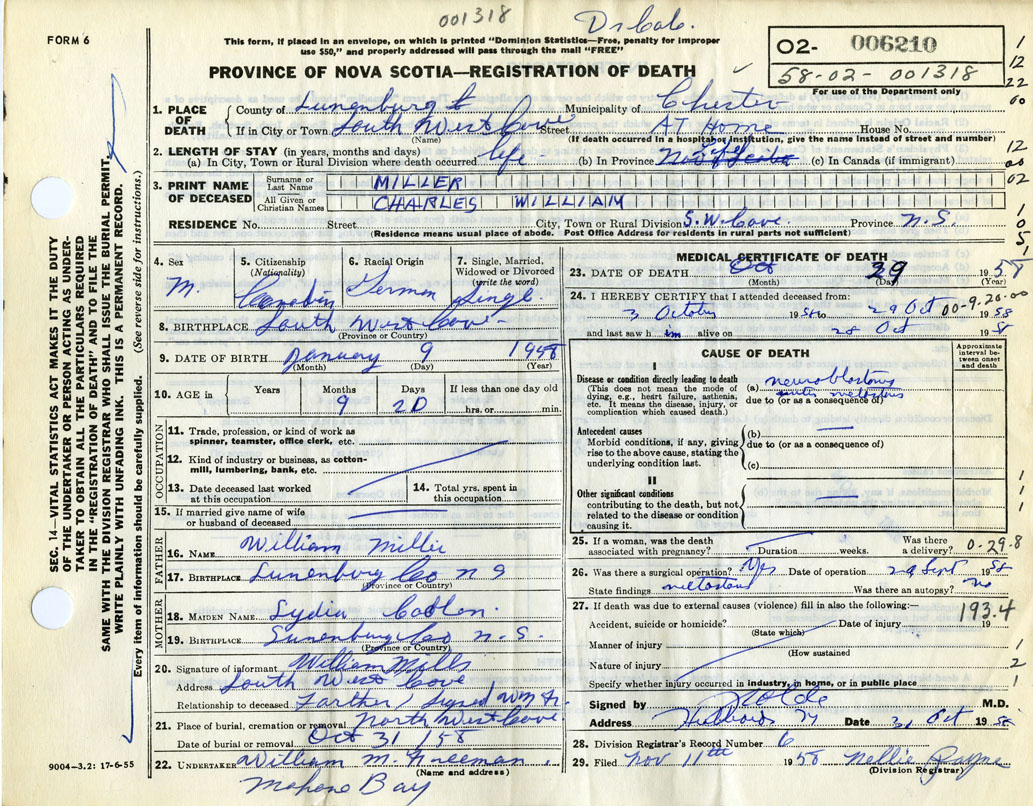 001318
Dr Cole
FORM 6
This form, if placed in an envelope, on which is printed "Dominion Statistics—Free, penalty for improper
use $50," and properly addressed will pass through the mail "FREE"
PROVINCE OF NOVA SCOTIA—REGISTRATION OF DEATH
02- 006210
58-02-001318
For use of the Department only
1. PLACE OF DEATH
County of Lunenburg Municipality of Chester
If in City or Town South West Cove Street AT Home House No.
(Name) (If death occurred in a hospital or institution, give the name instead of street and number)
2. LENGTH OF STAY (in years, months and days)
(a) In City, Town or Rural Division where death occurred life (b) In Province Life (c) In Canada (if immigrant)
3. PRINT NAME OF DECEASED
Surname or Last Name MILLER
All Given or Christian Names CHARLES WILLIAM
RESIDENCE No. Street City, Town or Rural Division S.W. Cove Province N.S.
(Residence means usual place of abode. Post Office Address for residents in rural parts not sufficient)
4. Sex M.
5. Citizenship (Nationality) Canadian
6. Racial Origin German
7. Single, Married, Widowed or Divorced (write the word) Single
8. BIRTHPLACE South West Cove
(Province or Country)
9. DATE OF BIRTH January 9 1958
(Month) (Day) (Year)
10. AGE in Years Months 9 Days 20 If less than one day old hrs. or min.
OCCUPATION
11. Trade, profession, or kind of work as spinner, teamster, office clerk, etc.
12. Kind of industry or business, as cotton-mill, lumbering, bank, etc.
13. Date deceased last worked at this occupation
14. Total yrs. spent in this occupation
15. If married give name of wife or husband of deceased
FATHER
16. NAME William Miller
17. BIRTHPLACE Lunenburg Co N S
(Province or Country)
MOTHER
18. MAIDEN NAME Lydia
19. BIRTHPLACE Lunenburg Co N.S.
(Province or Country)
20. Signature of informant William Mills
Address South West Cove
Relationship to deceased Farther Signed
21. Place of burial, cremation or removal North West Cove
Date of burial or removal Oct 31/58
22. UNDERTAKER William M.
(Name and address)
Mahone Bay
9004—3.2: 17-6-55
MEDICAL CERTIFICATE OF DEATH
23. DATE OF DEATH Oct 29 1958
(Month) (Day) (Year)
24. I HEREBY CERTIFY that I attended deceased from:
3 October 1958 to 29 Oct 1958
00-9.20-00
and last saw him alive on 28 Oct 1958
CAUSE OF DEATH
Approximate interval between onset and death
I
Disease or condition directly leading to death
(This does not mean the mode of dying, e.g., heart failure, asthenia, etc. It means the disease, injury, or complication which caused death.)
(a) neuroblastoma
with metastasis
due to (or as a consequence of)
Antecedent causes
Morbid conditions, if any, giving rise to the above cause, stating the underlying condition last.
(b)
due to (or as a consequence of)
(c)
II
Other significant conditions
contributing to the death, but not related to the disease or condition causing it.
25. If a woman, was the death associated with pregnancy? Duration weeks. Was there a delivery? 0-29.8
26. Was there a surgical operation? Yes Date of operation 29 Sept 1958
State findings Was there an autopsy? no
27. If death was due to external causes (violence) fill in also the following:—
193.4
Accident, suicide or homicide? (State which) Date of injury 19
Manner of injury
(How sustained
Nature of injury
Specify whether injury occurred in industry, in home, or in public place
Signed by M.D.
Address Hubbards Date 31 Oct 1958
28. Division Registrar's Record Number 6
29. Filed Nov 11th 1958 Nellie
(Division Registrar)
SEC. 14—VITAL STATISTICS ACT MAKES IT THE DUTY
OF THE UNDERTAKER OR PERSON ACTING AS UNDER-
TAKER TO OBTAIN ALL THE PARTICULARS REQUIRED
IN THE "REGISTRATION OF DEATH" AND TO FILE THE
SAME WITH THE DIVISION REGISTRAR WHO SHALL ISSUE THE BURIAL PERMIT.
WRITE PLAINLY WITH UNFADING INK. THIS IS A PERMANENT RECORD.
Every item of information should be carefully supplied. (See reverse side for instructions.)
1
12
22
00
12
00
02
1
0
5
1
1
1
1
2
1